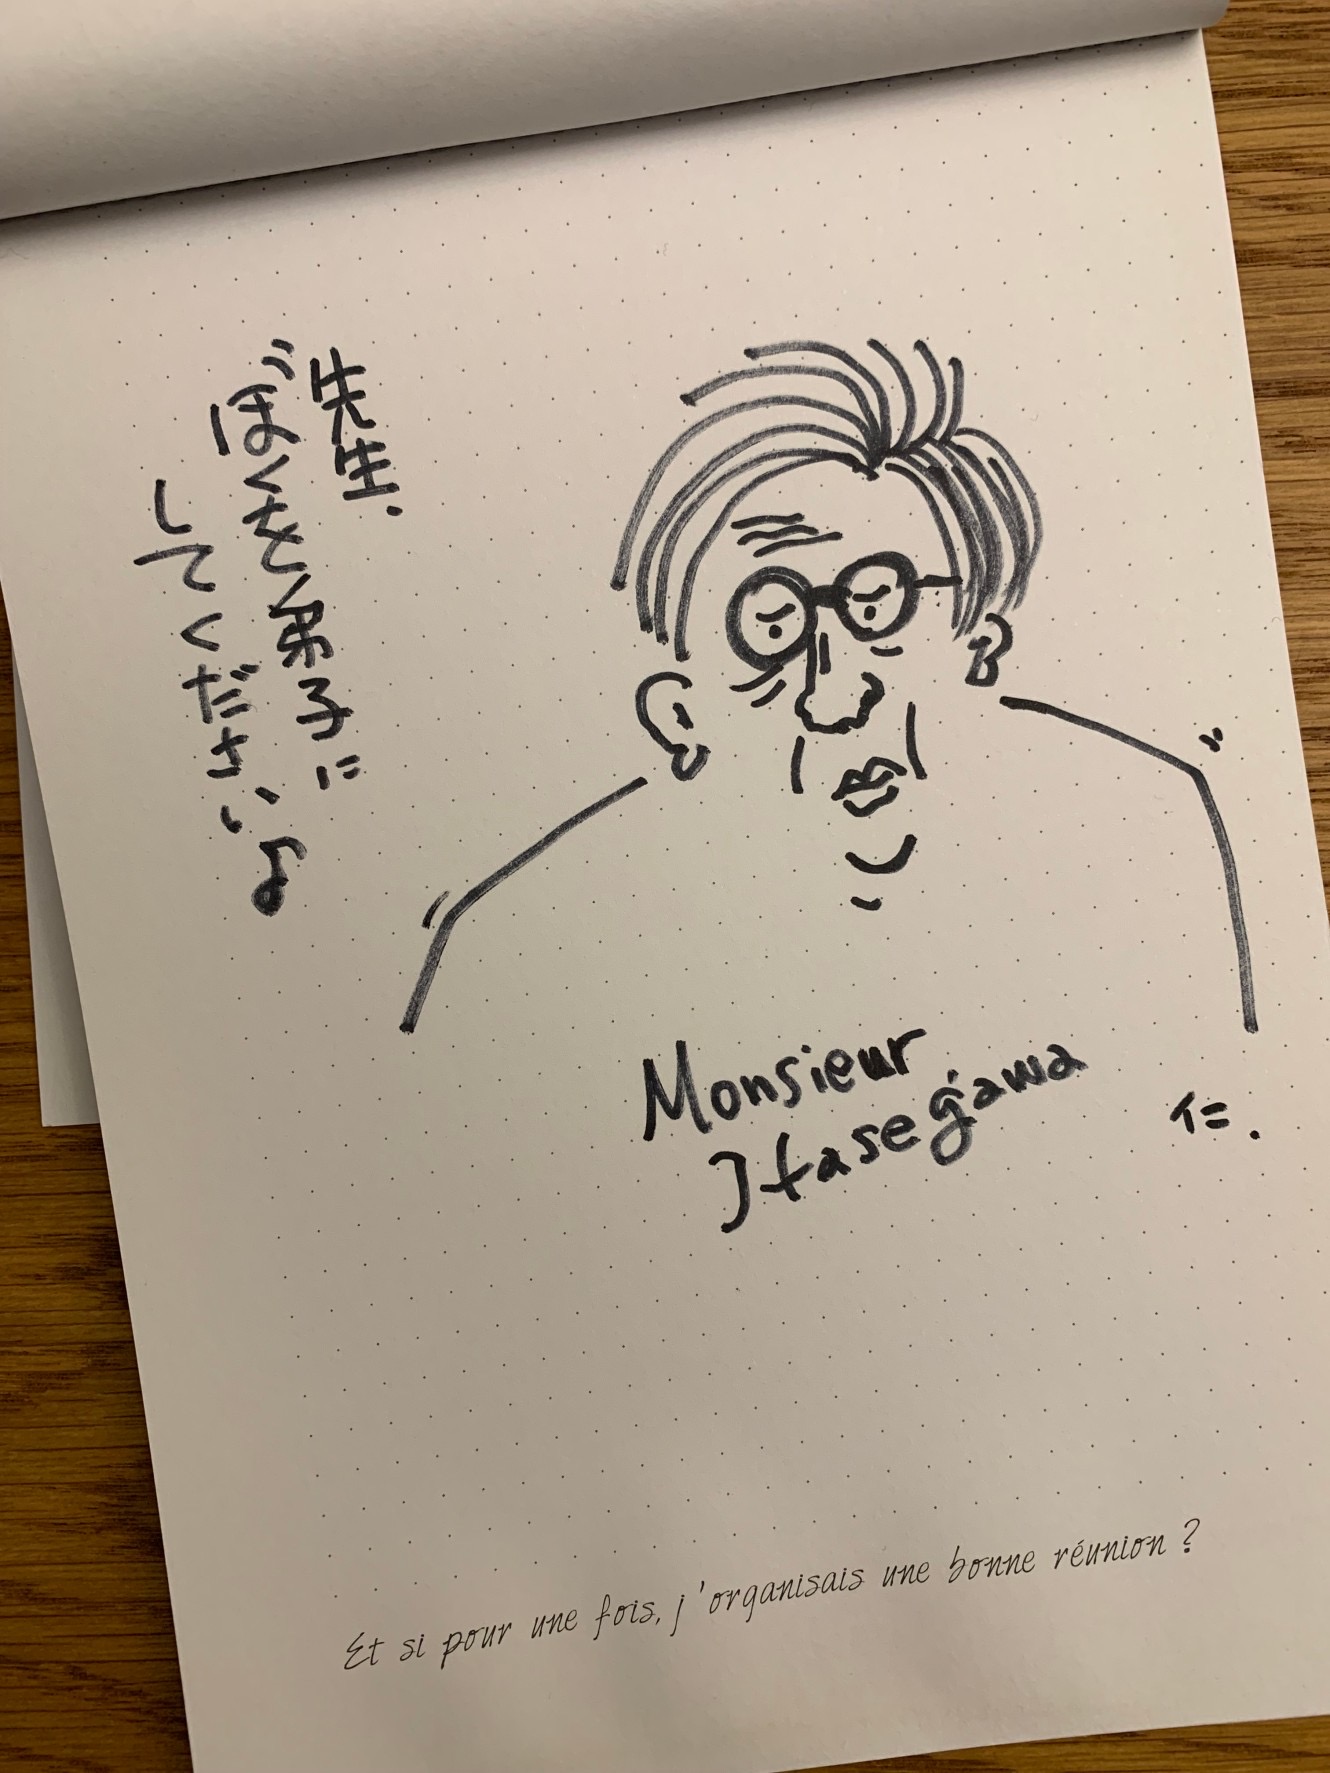 先生.
ぼくを弟子に
してくださいよ
Monsieur
Itasegawa
イ=.
Et si pour une fois, j'organisais une bonne réunion ?